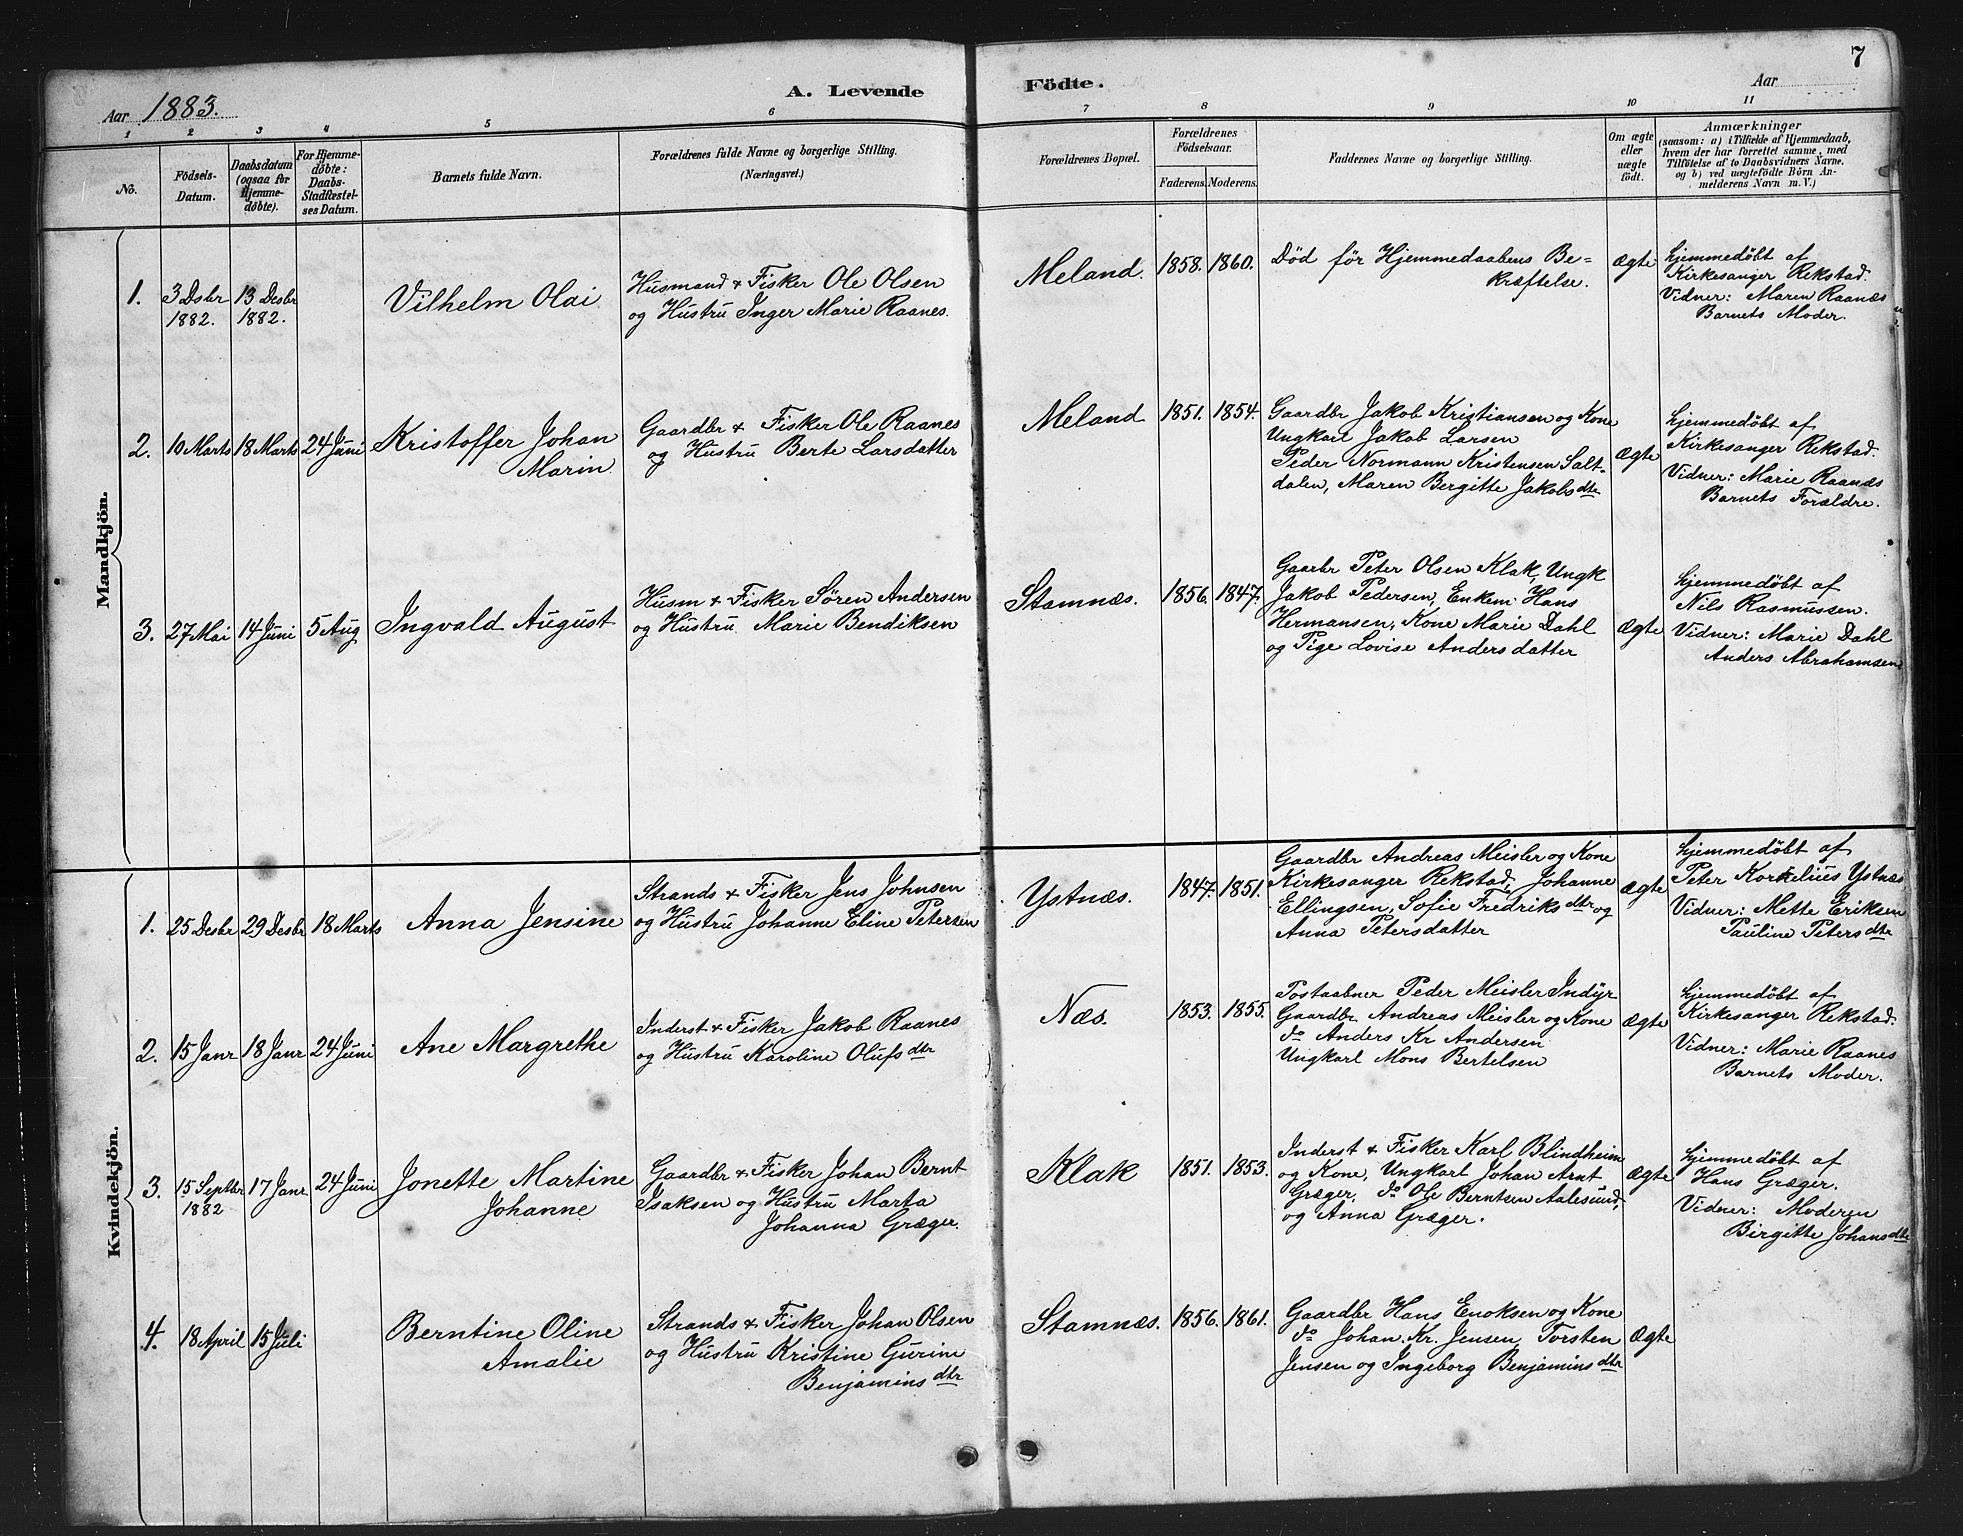 7
Aar 1883.
A. Levende Födte.
Aar
1 2 3 4 5 6 7 8 9 10 11
No.
Födsels-
Datum.
Daabsdatum
(ogsaa for
Hjemme-
döbte).
For Hjemme-
döbte:
Daabs-
Stadfæstel-
ses Datum.
Barnets fulde Navn.
Forældrenes fulde Navne og borgerlige Stilling.
(Næringsvei.)
Forældrenes Bopæl.
Forældrenes
Födselsaar.
Faderens. Moderens.
Faddernes Navne og borgerlige Stilling.
Om ægte
eller
uægte
födt.
Anmærkninger
(saasom: a) i Tilfælde af Hjemmedaab,
hvem der har forrettet samme, med
Tilföielse af to Daabsvidners Navne,
og b) ved uægtefödte Börn An-
melderens Navn m. V.)
Mandkjön.
1.
3 Desbr
1882.
13 Desbr
1882.
Vilhelm Olai
Husmand & Fisker Ole Olsen
og Hustru Inger Marie Raanes.
Meland.
1858. 1860.
Død før Hjemmedaabens Be=
kræftelse.
Ægte
Hjemmedøbt af
Kirkesanger Rekstad.
Vidner: Maren Raanæs
Barnets Moder.
2.
10 Marts
18 Marts
24 Juni
Kristoffer Johan
Marin
Gaardbr & Fisker Ole Raanes
og Hustru Berte Larsdatter
Meland
1851. 1854.
Gaardbr Jakob Kristiansen og Kone
Ungkarl Jakob Larsen
Peder Normann Kristensen Salt-
dalen, Maren Bergitte Jakobsdtr
Ægte
Hjemmedøbt af
Kirkesanger Rekstad.
Vidner: Marie Raanæs
Barnets Forældre.
3.
27 Mai
14 Juni
5 Aug
Ingvald August
Husm & Fisker Søren Andersen
og Hustru Marie Bendiksen
Stamnæs.
1856. 1847.
Gaarbr Peter Olsen Klak, Ungk
Jakob Pedersen, Enkem. Hans
Hermansen, Kone Marie Dahl
og Pige Lovise Andersdatter
Ægte
Hjemmedøbt af
Nils Rasmussen.
Vidner: Marie Dahl
Anders Abrahamsen
Kvindekjön.
1.
25 Desbr
29 Desbr
18 Marts
Anna Jensine
Strands & Fisker Jens Johnsen
og Hustru Johanne Eline Petersen
Ystnæs.
1847. 1851.
Gaardbr Andreas Meisler og Kone
Kirkesanger Rekstad, Johanne
Ellingsen, Sofie Fredriksdtr og
Anna Petersdatter
Ægte
Hjemmedøbt af
Peter Kornelius Ystnæs
Vidner: Mette Eriksen
Pauline Petersdtr
2.
15 Janr
18 Janr
24 Juni
Ane Margrethe
Inderst & Fisker Jakob Raanes
og Hustru Karoline Olufsdtr
Næs.
1853. 1855.
Postaabner Peder Meisler Indyr
Gaardbr Andreas Meisler og Kone
do Anders Kr Andersen
Ungkarl Mons Bertelsen
Ægte
Hjemmedøbt af
Kirkesanger Rekstad.
Vidner: Marie Raanes
Barnets Moder.
3.
15 Septbr
1882
17 Janr
24 Juni
Jonette Martine
Johanne
Gaardbr & Fisker Johan Bernt
Isaksen og Hustru Marta
Johanna Græger.
Klak
1851. 1853.
Inderst & Fisker Karl Blindheim
og Kone, Ungkarl Johan Arnt
Græger, do Ole Berntsen Aalesund,
og Anna Græger.
Ægte
Hjemmedøbt af
Hans Græger.
Vidner: Moderen
Birgitte Johansdtr
4.
18 April
15 Juli
Berntine Oline
Amalie
Strands & Fisker Johan Olsen
og Hustru Kristine Gurine
Benjaminsdtr
Stamnæs.
1856. 1861.
Gaardbr Hans Enoksen og Kone
do Johan. Kr. Jensen, Torsten
Jensen og Ingeborg Benjaminsdtr
Ægte